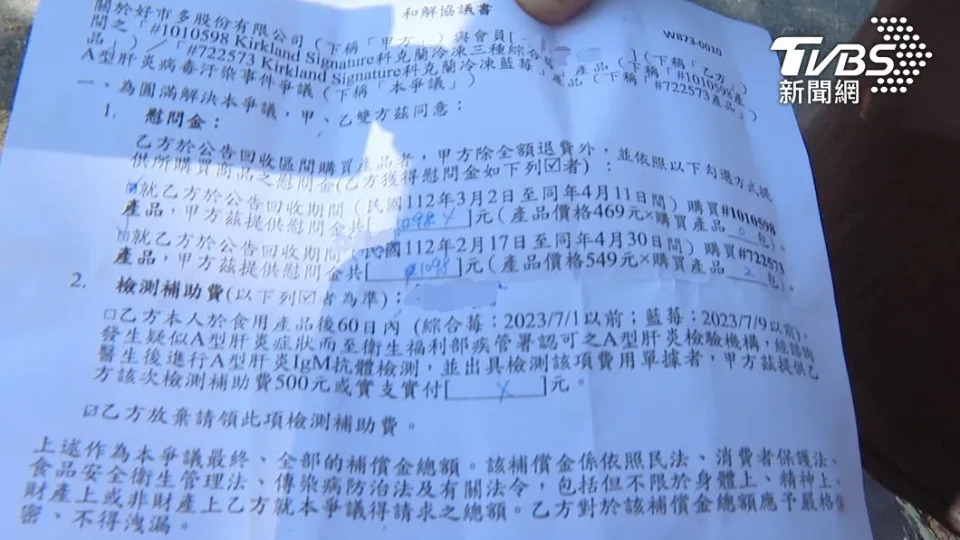 和解協議書
W873-0010
TVBS
新聞網
關於好市多股份有限公司（下稱「甲方」）與會員[ ]（下稱「乙方」）
間之「#1010598 Kirkland Signature科克蘭冷凍三種綜合莓」產品（下稱「#1010598產
品」）／「#722573 Kirkland Signature科克蘭冷凍藍莓」產品（下稱「#722573產品」）
A型肝炎病毒汙染事件爭議（下稱「本爭議」）
一、為圓滿解決本爭議，甲、乙雙方茲同意：
1. 慰問金：
乙方於公告回收區間購買產品者，甲方除全額退費外，並依照以下勾選方式提
供所購買商品之慰問金(乙方獲得慰問金如下列☑者)：
☑就乙方於公告回收期間（民國112年3月2日至同年4月11日間）購買#1010598
產品，甲方茲提供慰問金共[ ]元（產品價格469元×購買產品 0 包）。
☑就乙方於公告回收期間（民國112年2月17日至同年4月30日間）購買#722573
產品，甲方茲提供慰問金共[ 1098 ]元（產品價格549元×購買產品 2 包）。
2. 檢測補助費(以下列☑者為準)：
□乙方本人於食用產品後60日內（綜合莓：2023/7/1以前；藍莓：2023/7/9以前），
發生疑似A型肝炎症狀而至衛生福利部疾管署認可之A型肝炎檢驗機構，經諮詢
醫生後進行A型肝炎IgM抗體檢測，並出具檢測該項費用單據者，甲方茲提供乙
方該次檢測補助費500元或實支實付[ X ]元。
☑乙方放棄請領此項檢測補助費。
上述作為本爭議最終、全部的補償金總額。該補償金係依照民法、消費者保護法、
食品安全衛生管理法、傳染病防治法及有關法令，包括但不限於身體上、精神上、
財產上或非財產上乙方就本爭議得請求之總額。乙方對於該補償金總額應予嚴格保
密、不得洩漏。